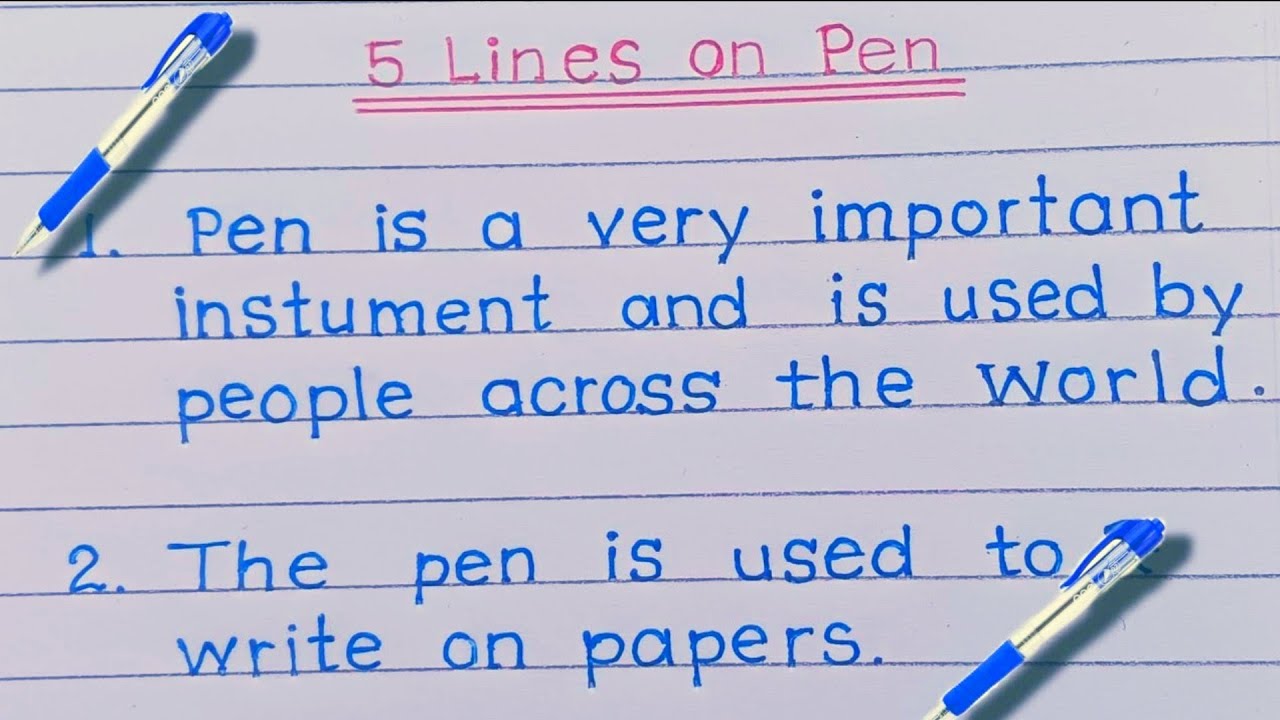 5 Lines on Pen
1. Pen is a very important
instument and is used by
people across the world.
2. The pen is used to
write on papers.